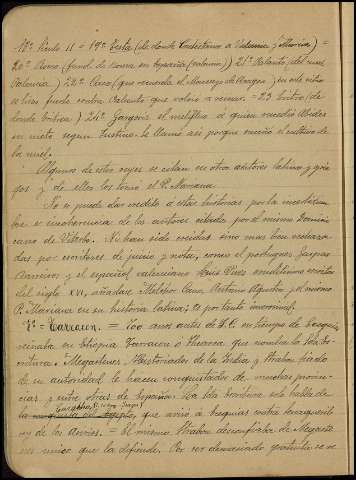 18º Siculo II = 19º Testa (de donde Contestanos a Valencia y Murcia) =
20º Romo (fundó de nuevo en España (Valencia)) 21º Palatuo, (del cual
Palencia) 22º Caco (que venido del Moncayo de Aragon, en este sitio
= 23 Eritro (de
donde Eritrea) 24º Gargoris el melifluo á quien sucedió Abides
su nieto segun Justino. Se llamó asi porque enseñó el cultivo de
la miel.
Algunos de estos reyes se citan en otros autores latinos y grie
gos y de ellos los tomó el P. Mariana.
No se puede dar credito á estas historias por la incertidum
bre e incoherencia de los autores citados por el mismo Domini
cano de Viterbo. Ni han sido creidos sino mas bien rechaza
dos por escritores de juicio y nota, como el portugues Gaspar
Barreiros y el español valenciano Luis Vives eruditisimo escritor
del siglo XVI, añadase Melchor Cano, Antonio Agustin y el mismo
P. Mariana en su historia latina; es por tanto inverosimil.
2º = Tarracon. = 700 años antes de J.C. en tiempo de Ezequias
reinaba en Etiopia Tarracon o Tharaca que nombra la Sda Es-
critura. Megastenes, Historiador de la India y Strabon fiado
de su autoridad le hacen conquistador de muchas provin-
cias y entre otras de España. La Sda Escritura solo habla de
que avisó a Ezequias contra Senaquerib
rey de los Asirios. = El mismo Strabon desconfiaba de Megaste
nes unico que la defiende. Por ser demasiado fabuloso se ve